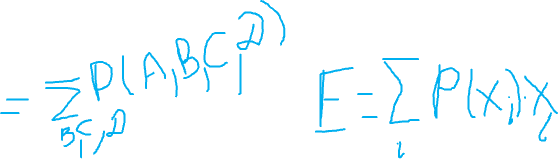 = ∑_{B,C,D} P(A,B,C,D)
E = ∑_i P(x_i)·x_i